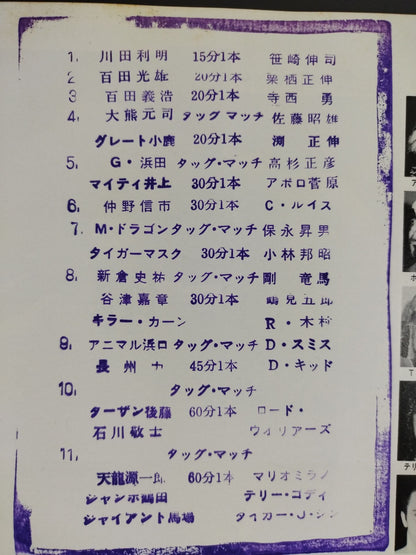 1. 川田利明 15分1本 笹崎伸司
2 百田光雄 20分1本 栗栖正伸
3 百田義浩 20分1本 寺西 勇
4. 大熊元司 タッグマッチ 佐藤昭雄
グレート小鹿 20分1本 渕 正伸
5. G・浜田 タッグ・マッチ 高杉正彦
マイティ井上 30分1本 アポロ菅原
6. 仲野信市 30分1本 C・ルイス
7. M・ドラゴン タッグ・マッチ 保永昇男
タイガーマスク 30分1本 小林邦昭
8. 新倉史祐 タッグ・マッチ 剛 竜馬
谷津嘉章 30分1本 鶴見五郎
キラー・カーン R・木村
9. アニマル浜口 タッグ・マッチ D・スミス
長 州 力 45分1本 D・キッド
10. タッグ・マッチ
ターザン後藤 60分1本 ロード・
石川敬士 ウォリアーズ
11. タッグ・マッチ
天龍源一郎 60分1本 マリオミラノ
ジャンボ鶴田 テリー・ゴディ
ジャイアント馬場 タイガー・J・シン